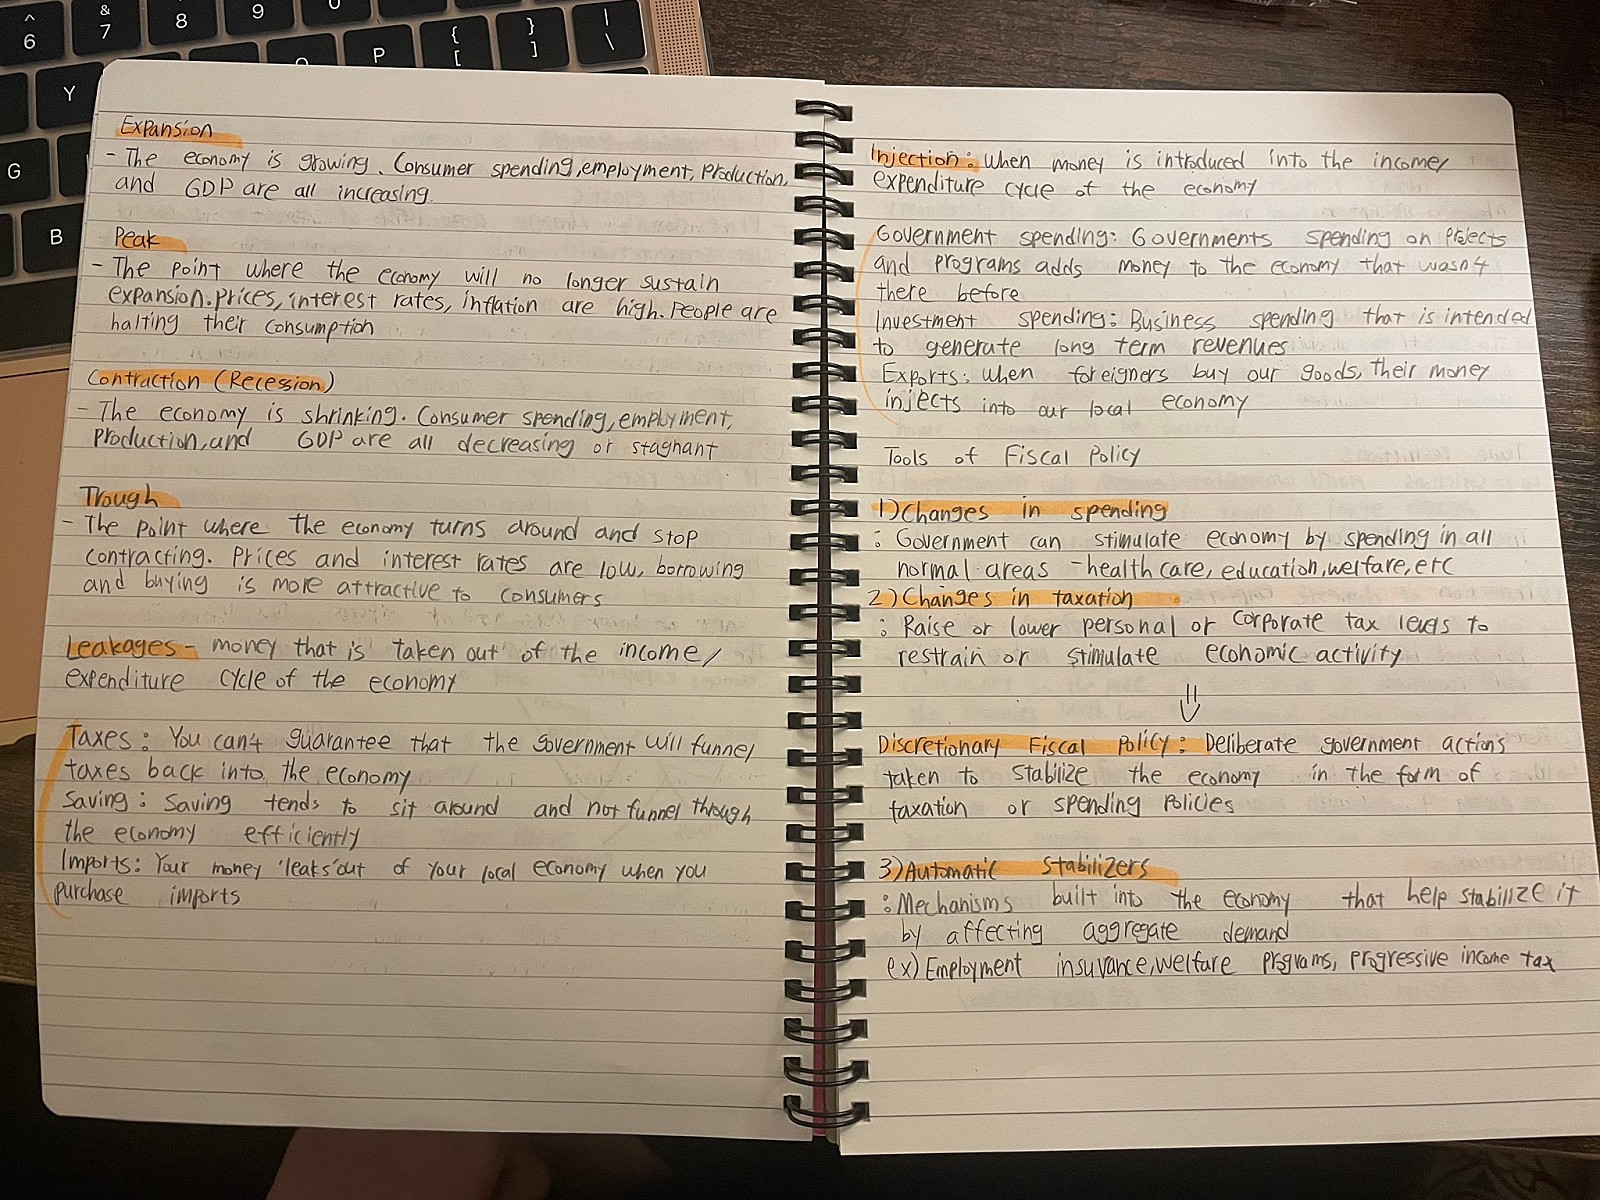 ^
6
&
7
8
9
U
O
P
{
[
}
]
|
\
Y
G
B
Expansion
- The economy is growing. Consumer spending, employment, production,
and GDP are all increasing.
Peak
- The point where the economy will no longer sustain
expansion. prices, interest rates, inflation are high. People are
halting their consumption
Contraction (Recession)
- The economy is shrinking. Consumer spending, employment,
production, and GDP are all decreasing or stagnant
Trough
- The point where the economy turns around and stop
contracting. Prices and interest rates are low, borrowing
and buying is more attractive to consumers
Leakages - money that is 'taken out' of the income/
expenditure cycle of the economy
Taxes : You can't guarantee that the government will funnel
taxes back into the economy
Saving : Saving tends to sit around and not funnel through
the economy efficiently
Imports: Your money 'leaks' out of your local economy when you
purchase imports
Injection : When money is introduced into the income/
expenditure cycle of the economy
Government spending: Governments spending on projects
and programs adds money to the economy that wasn't
there before
Investment spending: Business spending that is intended
to generate long term revenues
Exports: when foreigners buy our goods, their money
injects into our local economy
Tools of Fiscal Policy
1) Changes in spending
: Government can stimulate economy by spending in all
normal areas - health care, education, welfare, etc
2) Changes in taxation
: Raise or lower personal or corporate tax levels to
restrain or stimulate economic activity
⇓
Discretionary Fiscal Policy : Deliberate government actions
taken to stabilize the economy in the form of
taxation or spending policies
3) Automatic stabilizers
: Mechanisms built into the economy that help stabilize it
by affecting aggregate demand
ex) Employment insurance, welfare programs, progressive income tax